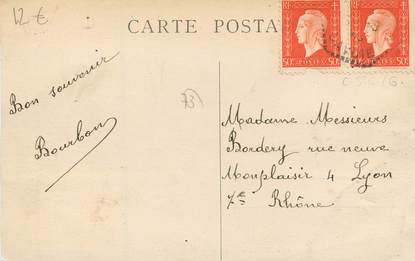 12 €
CARTE POSTA
RF RF
50c POSTES 50c 50c POSTES 50c
Bon souvenir
Bourbon
73
Madame Messieurs
Bordery rue neuve
Monplaisir 4 Lyon
7e Rhône